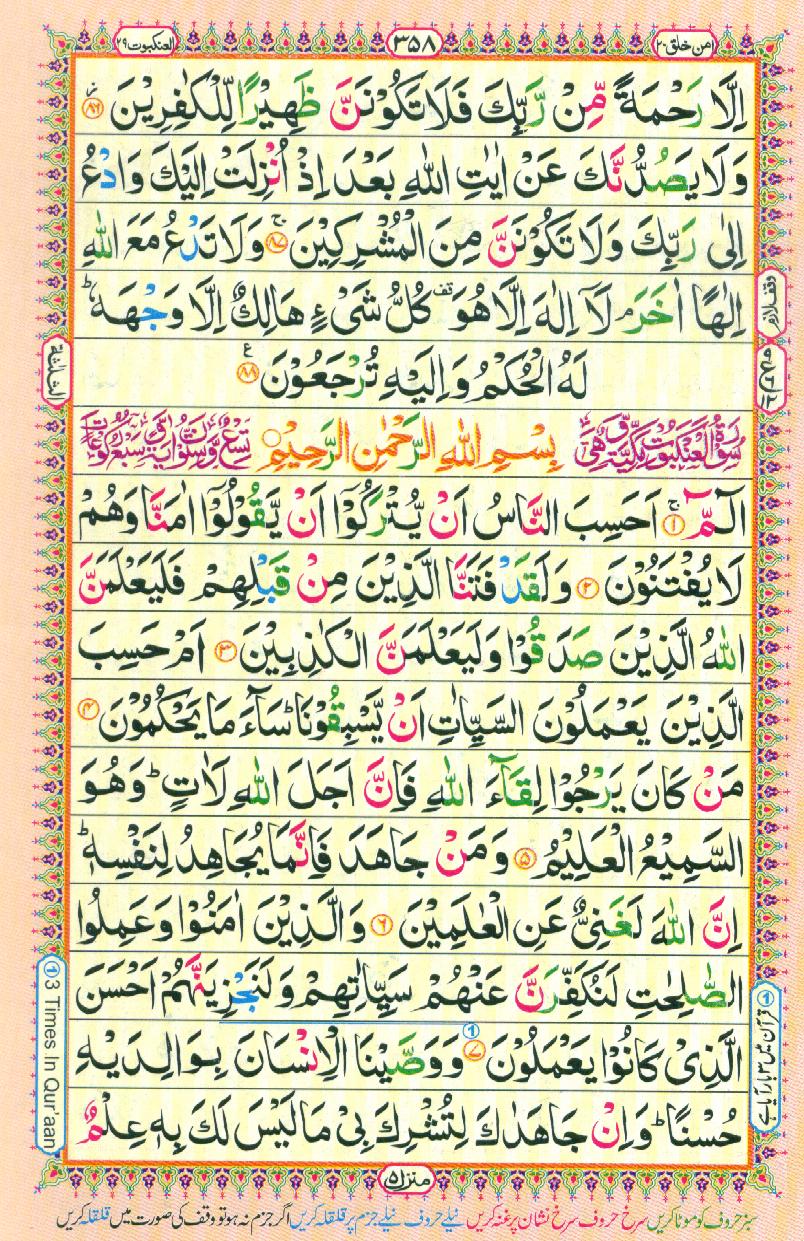 امن خلق ٢٠
٣٥٨
العنكبوت ٢٩
اِلَّا رَحْمَةً مِّنْ رَّبِّكَ فَلَا تَكُوْنَنَّ ظَهِيْرًا لِّلْكٰفِرِيْنَ ۝٨٦
وَلَا يَصُدُّنَّكَ عَنْ اٰيٰتِ اللّٰهِ بَعْدَ اِذْ اُنْزِلَتْ اِلَيْكَ وَادْعُ
اِلٰى رَبِّكَ وَلَا تَكُوْنَنَّ مِنَ الْمُشْرِكِيْنَ ۝٨٧ۚ وَلَا تَدْعُ مَعَ اللّٰهِ
اِلٰهًا اٰخَرَ ۘ لَآ اِلٰهَ اِلَّا هُوَ قف كُلُّ شَىْءٍ هَالِكٌ اِلَّا وَجْهَهٗ ؕ
وقف لازم
لَهُ الْحُكْمُ وَاِلَيْهِ تُرْجَعُوْنَ ۝٨٨ ع
الثلثة
سُوْرَةُ الْعَنْكَبُوْتِ مَكِّيَّةٌ وَّهِىَ
بِسْمِ اللّٰهِ الرَّحْمٰنِ الرَّحِيْمِ
تِسْعٌ وَّسِتُّوْنَ اٰيَةً وَّسَبْعُ رُكُوْعَاتٍ
الٓمّٓ ۝١ۚ اَحَسِبَ النَّاسُ اَنْ يُّتْرَكُوْٓا اَنْ يَّقُوْلُوْٓا اٰمَنَّا وَهُمْ
لَا يُفْتَنُوْنَ ۝٢ وَلَقَدْ فَتَنَّا الَّذِيْنَ مِنْ قَبْلِهِمْ فَلَيَعْلَمَنَّ
اللّٰهُ الَّذِيْنَ صَدَقُوْا وَلَيَعْلَمَنَّ الْكٰذِبِيْنَ ۝٣ اَمْ حَسِبَ
الَّذِيْنَ يَعْمَلُوْنَ السَّيِّاٰتِ اَنْ يَّسْبِقُوْنَا ؕ سَآءَ مَا يَحْكُمُوْنَ ۝٤
مَنْ كَانَ يَرْجُوْا لِقَآءَ اللّٰهِ فَاِنَّ اَجَلَ اللّٰهِ لَاٰتٍ ؕ وَهُوَ
السَّمِيْعُ الْعَلِيْمُ ۝٥ وَمَنْ جَاهَدَ فَاِنَّمَا يُجَاهِدُ لِنَفْسِهٖ ؕ
اِنَّ اللّٰهَ لَغَنِىٌّ عَنِ الْعٰلَمِيْنَ ۝٦ وَالَّذِيْنَ اٰمَنُوْا وَعَمِلُوا
الصّٰلِحٰتِ لَنُكَفِّرَنَّ عَنْهُمْ سَيِّاٰتِهِمْ وَلَنَجْزِيَنَّهُمْ اَحْسَنَ
الَّذِىْ كَانُوْا يَعْمَلُوْنَ ۝٧ ① وَوَصَّيْنَا الْاِنْسَانَ بِوَالِدَيْهِ
حُسْنًا ؕ وَاِنْ جَاهَدٰكَ لِتُشْرِكَ بِىْ مَا لَيْسَ لَكَ بِهٖ عِلْمٌ
① قرآن میں ۳ بار آیا ہے
① 3 Times In Qur'aan
منزل ۵
سبز حروف کو موٹا کریں سرخ حروف سرخ نشان پر غنہ کریں نیلے حروف نیلے جزم پر قلقلہ کریں اگر جزم نہ ہو تو وقف کی صورت میں قلقلہ کریں